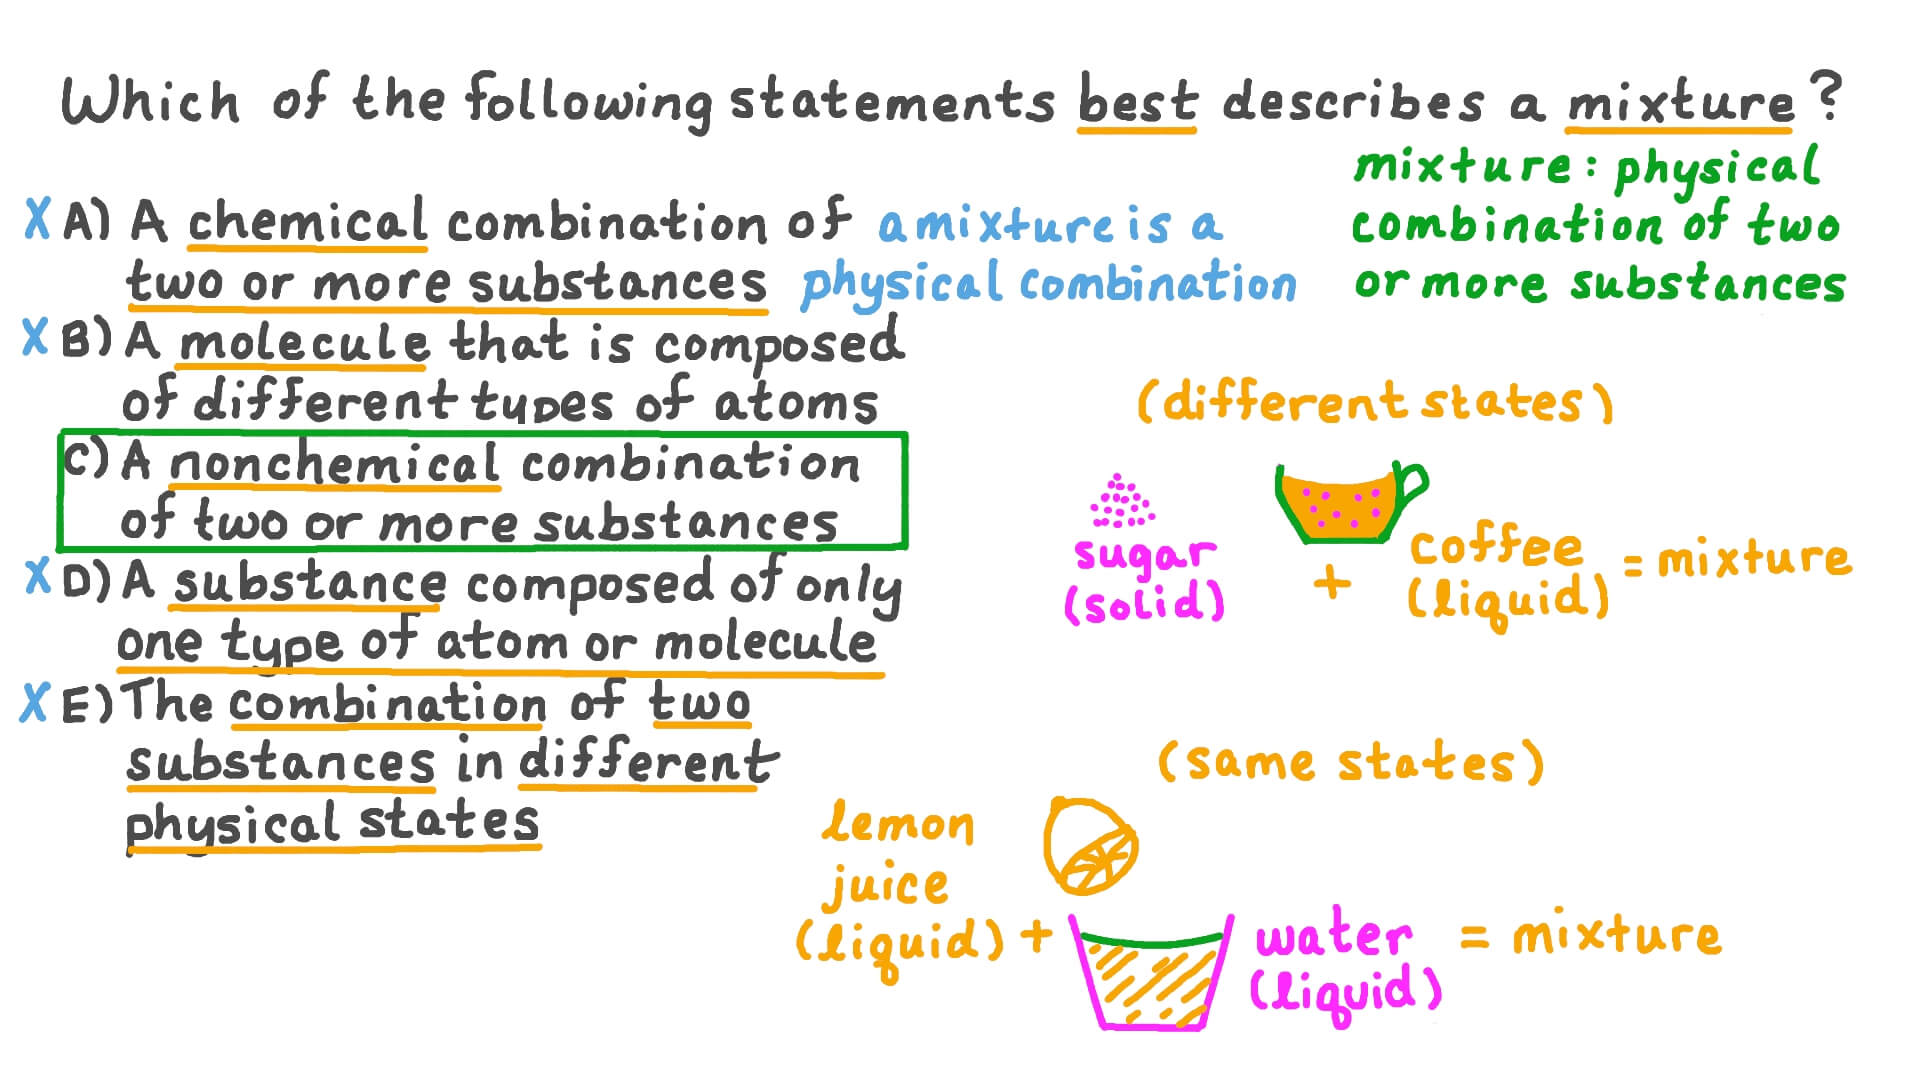 Which of the following statements best describes a mixture?
mixture: physical
combination of two
or more substances
X A) A chemical combination of
two or more substances
a mixture is a
physical combination
X B) A molecule that is composed
of different types of atoms
C) A nonchemical combination
of two or more substances
X D) A substance composed of only
one type of atom or molecule
X E) The combination of two
substances in different
physical states
(different states)
sugar
(solid)
+
coffee
(liquid)
= mixture
(same states)
lemon
juice
(liquid) +
water
(liquid)
= mixture